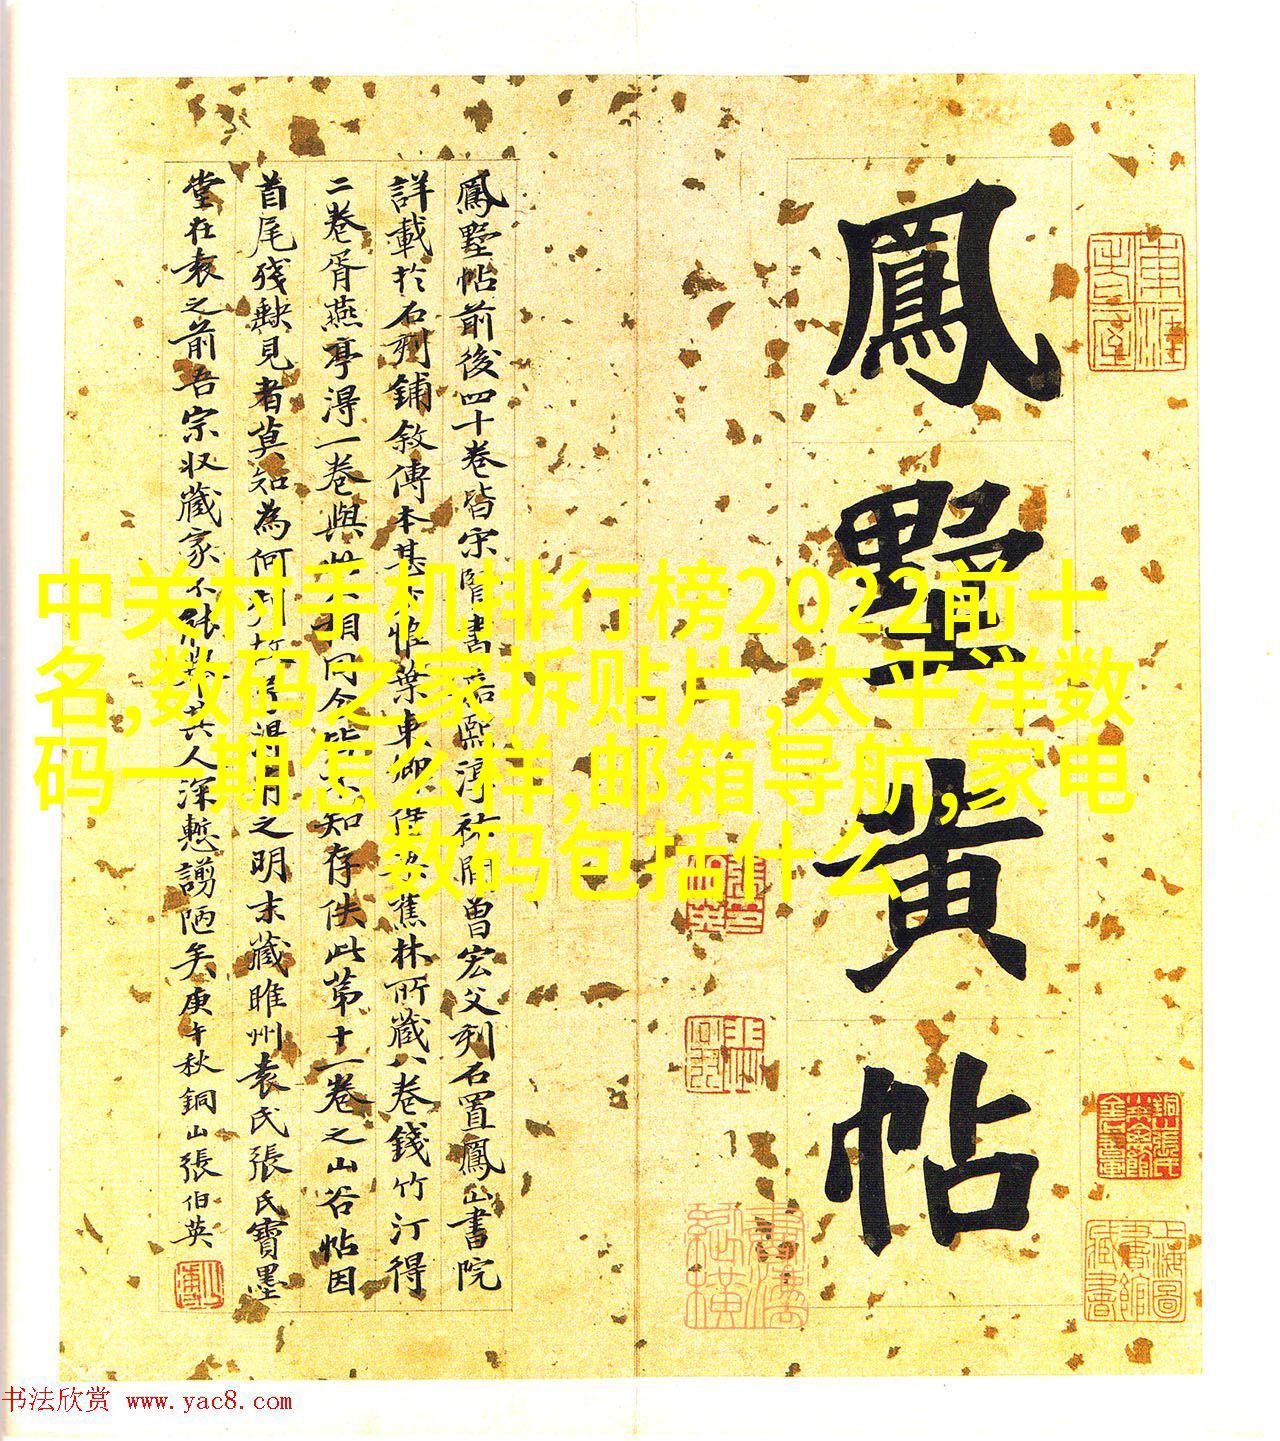 鳳墅黃帖
鳳墅帖前後四十卷皆宋曾宏父刋石置鳳山書院
詳載於石刻鋪敘傳本甚葉東卿蕉林所藏八卷錢竹汀得
二卷胥燕亭得一卷與相同今知存佚此第十一卷之山谷帖因
首尾殘缺見者莫知為何刋之明末藏睢州袁氏張氏寶墨
堂在袁之前吾宗收藏家不共人深慙謭陋矣庚午秋銅山張伯英
中关村手机排行榜2022前十
名,数码之家拆贴片,太平洋数
码一期怎么样,邮箱导航,家电
数码包括什么
上海圖書館藏書
书法欣赏 www.yac8.com